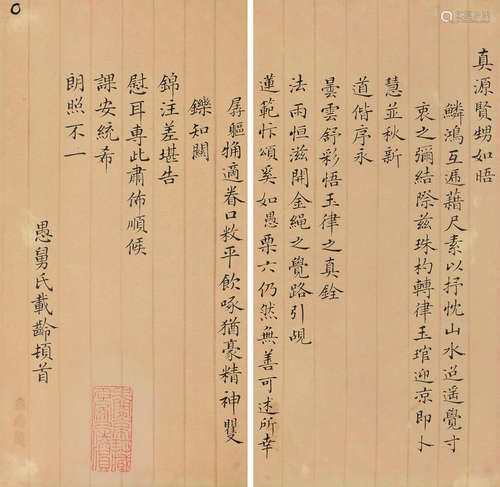 真源賢甥如晤
鱗鴻互遞藉尺素以抒忱山水迢遥覺寸
衷之彌結際兹珠杓轉律玉琯迎凉即卜
慧並秋新
道偕序永
曇雲舒彩悟玉律之真銓
法雨恒滋開金繩之覺路引覘
蓮範忭頌奚如愚栗六仍然無善可述所幸
孱軀適眷口敉平飲啄猶豪精神矍
鑠知關
錦注差堪告
慰耳專此肅佈順候
課安統希
朗照不一
愚舅氏載齡頓首